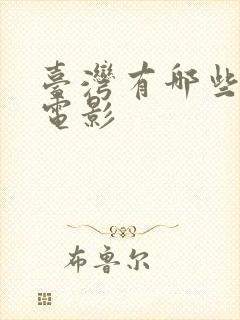 臺灣有哪些
電影
布鲁尔